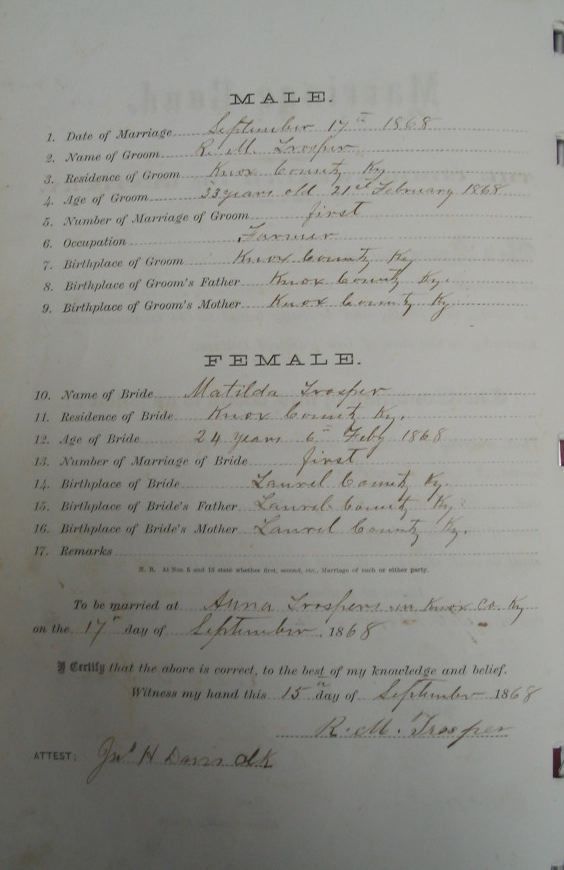 MALE.
1. Date of Marriage September 17th 1868
2. Name of Groom R. M. Trosper
3. Residence of Groom Knox County Ky
4. Age of Groom 33 years old 21st February 1868
5. Number of Marriage of Groom first
6. Occupation Farmer
7. Birthplace of Groom Knox County Ky
8. Birthplace of Groom's Father Knox County Ky.
9. Birthplace of Groom's Mother Knox County Ky
FEMALE.
10. Name of Bride Matilda Trosper
11. Residence of Bride Knox County Ky.
12. Age of Bride 24 years 6th Feby 1868
13. Number of Marriage of Bride first
14. Birthplace of Bride Laurel County Ky.
15. Birthplace of Bride's Father Laurel County Ky.
16. Birthplace of Bride's Mother Laurel County Ky.
17. Remarks
N. B. At Nos. 5 and 13 state whether first, second, etc., Marriage of each or either party.
To be married at Anna Trospers in Knox Co. Ky
on the 17th day of September 1868
I Certify that the above is correct, to the best of my knowledge and belief.
Witness my hand this 15th day of September 1868
R. M. Trosper
ATTEST: Jno H Davis clk